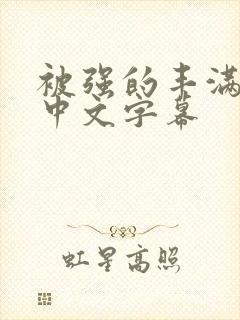 被强的丰满
中文字幕
虹星高照